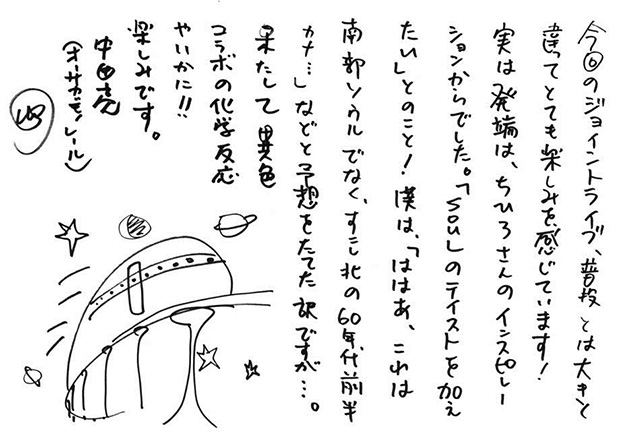 今回のジョイントライブ、普段とは大きく
違ってとても楽しみを感じています!
実は発端は、ちひろさんのインスピレー
ションからでした。「SOUL」のテイストを加え
たい」とのこと! 僕は、「ははあ、これは
南部ソウルでなく、すこし北の60年代前半
カナ…」などと予想をたてた訳ですが…。
果たして異色
コラボの化学反応
やいかに!!
楽しみです。
中田亮
(オーサカ=モノレール)